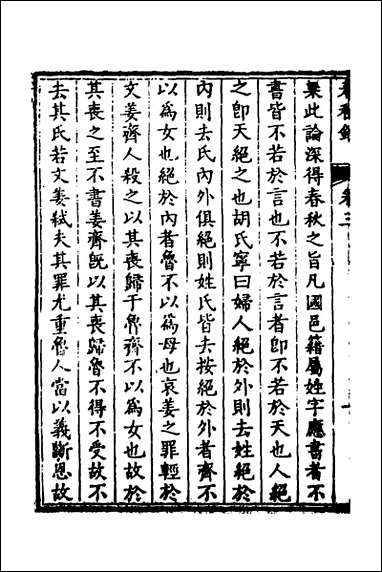 卷三
此論深得春秋之旨凡國邑籍屬姓字應書者不
書皆不若於言也不若於言者卽不若於天也人絕
之卽天絕之也胡氏寧曰婦人絕於外則去姓絕於
內則去氏內外俱絕則姓氏皆去按絕於外者齊不
以爲女也絕於內者魯不以爲母也哀姜之罪輕於
文姜齊人殺之以其喪歸于魯齊不以爲女也故於
其喪之至不書姜齊旣以其喪歸魯不得不受故不
去其氏若文姜弑夫其罪尤重魯人當以義斷恩故